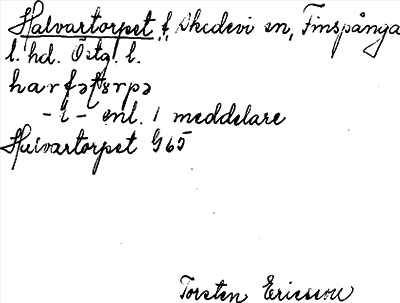 Halvartorpet, t, Skedevi sn, Finspånga
l. hd. Östg. l.
harfəțɐrpə
- l - enl. 1 meddelare
Hulvartorpet G65
Torsten Ericsson